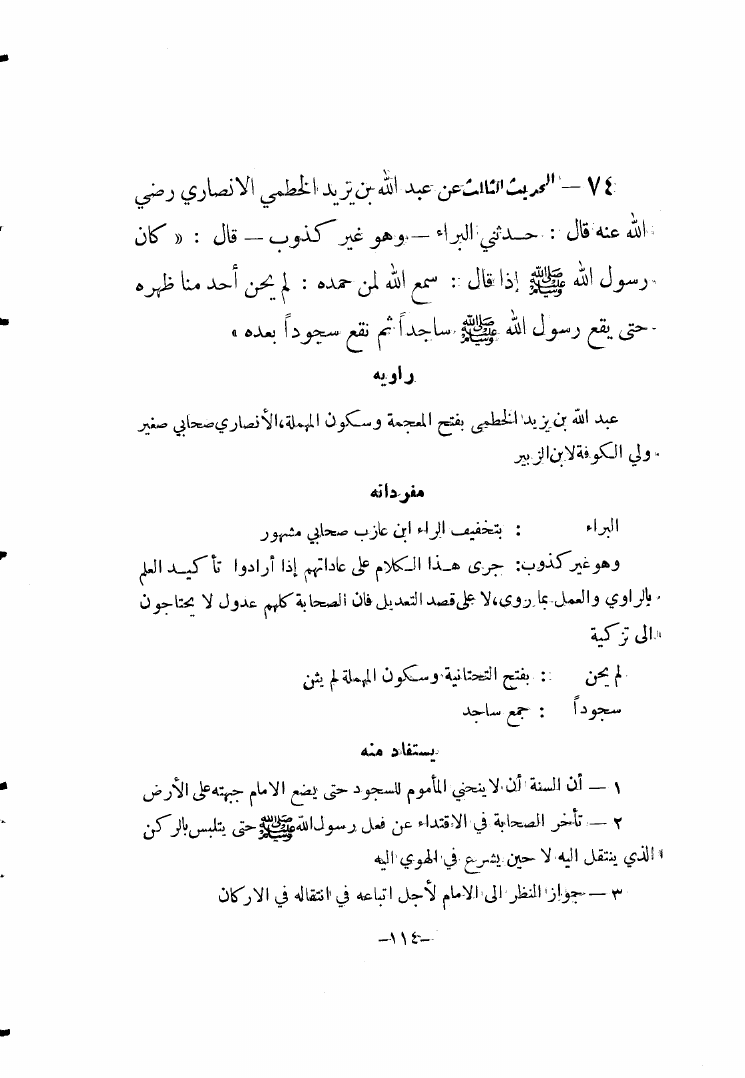 ٧٤ — الحديث الثالث عن عبد الله بن يزيد الخطمي الانصاري رضي
الله عنه قال : حدثني البراء — وهو غير كذوب — قال : « كان
رسول الله ﷺ إذا قال : سمع الله لمن حمده : لم يحن أحد منا ظهره
حتى يقع رسول الله ﷺ ساجداً ثم نقع سجوداً بعده »
راويه
عبد الله بن يزيد الخطمي بفتح المعجمة وسكون المهملة، الأنصاري صحابي صغير
ولي الكوفة لابن الزبير
مفرداته
البراء : بتخفيف الراء ابن عازب صحابي مشهور
وهو غير كذوب : جرى هذا الكلام على عاداتهم إذا أرادوا تأكيد العلم
بالراوي والعمل بما روى، لا على قصد التعديل فان الصحابة كلهم عدول لا يحتاجون
الى تزكية
لم يحن : بفتح التحتانية وسكون المهملة لم يثن
سجوداً : جمع ساجد
يستفاد منه
١ — أن السنة أن لا ينحني المأموم للسجود حتى يضع الامام جبهته على الأرض
٢ — تأخر الصحابة في الاقتداء عن فعل رسول الله ﷺ حتى يتلبس بالركن
الذي ينتقل اليه لا حين يشرع في الهوي اليه
٣ — جواز النظر الى الامام لأجل اتباعه في انتقاله في الاركان
—١١٤—